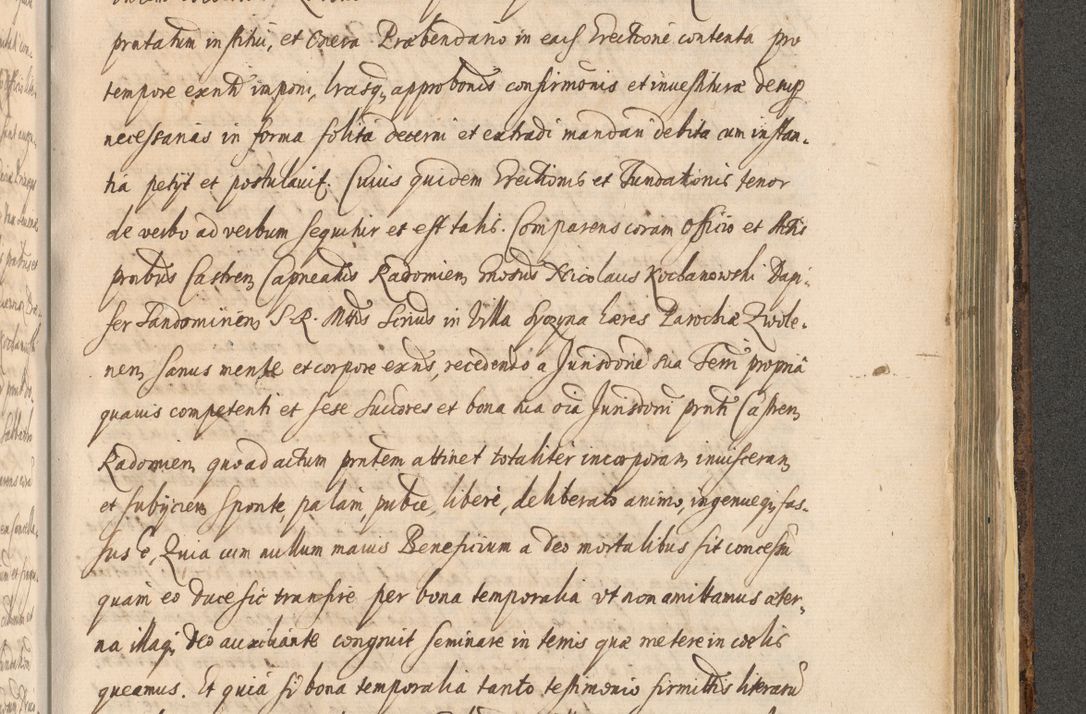 prntatum institui, et Onera Præbendario in eads Erectione contenta pro
tempore exnti imponi, lrasq, approbonis confirmonis et inuestituræ desup
necessarias in forma solita decerni et extradi mandari debita cum instan-
tia petijt et postulauit. Cuius quidem Erectionis et Fundationis tenor
de verbo ad verbum sequitur et est talis. Comparens coram Officio et Actis
prntibus Castren Capnealis Radomien Gnosus Nicolaus Kochanowski Dapi-
fer Sandomirien S. R. Mttis in Villa hæres Parochiæ Zwole-
nen, sanus mente et corpore exns, recedendo a Jurisdone sua Terri propria
quauis competenti et sese Succores et bona sua oia Jurisdoni prnti Castren
Radomien, quo ad actum prntem attinet totaliter incorporan, inuisceran,
et subijcien sponte, palam, publce, libere, deliberato animo, ingenueq, fas-
sus e, Quia cum nullum maius Beneficium a Deo mortalibus sit concessu
quam eo duce sic transire per bona temporalia vt non amittamus æter-
na illaq, Deo auxiliante congruit seminare in terris quæ metere in coelis
queamus. Et quia si bona temporalia tanto testimonio firmittis literaru